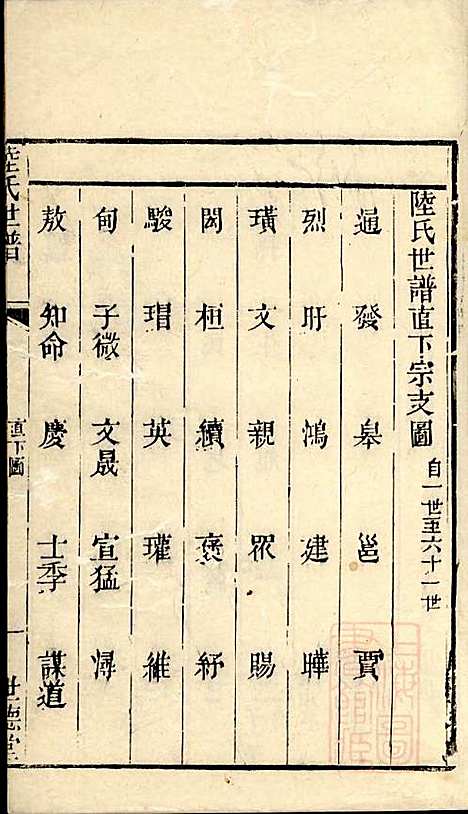 陸氏世譜直下宗支圖 自一世至六十一世
通 發 皋 邕 賈
烈 盱 鴻 建 曄
璜 文 親 眾 賜
閎 桓 續 褒 紆
駿 瑁 英 瓘 維
甸 子微 文晟 宣猛 潯
敖 知命 慶 士季 謀道
陸氏世譜 直下圖 一 世德堂